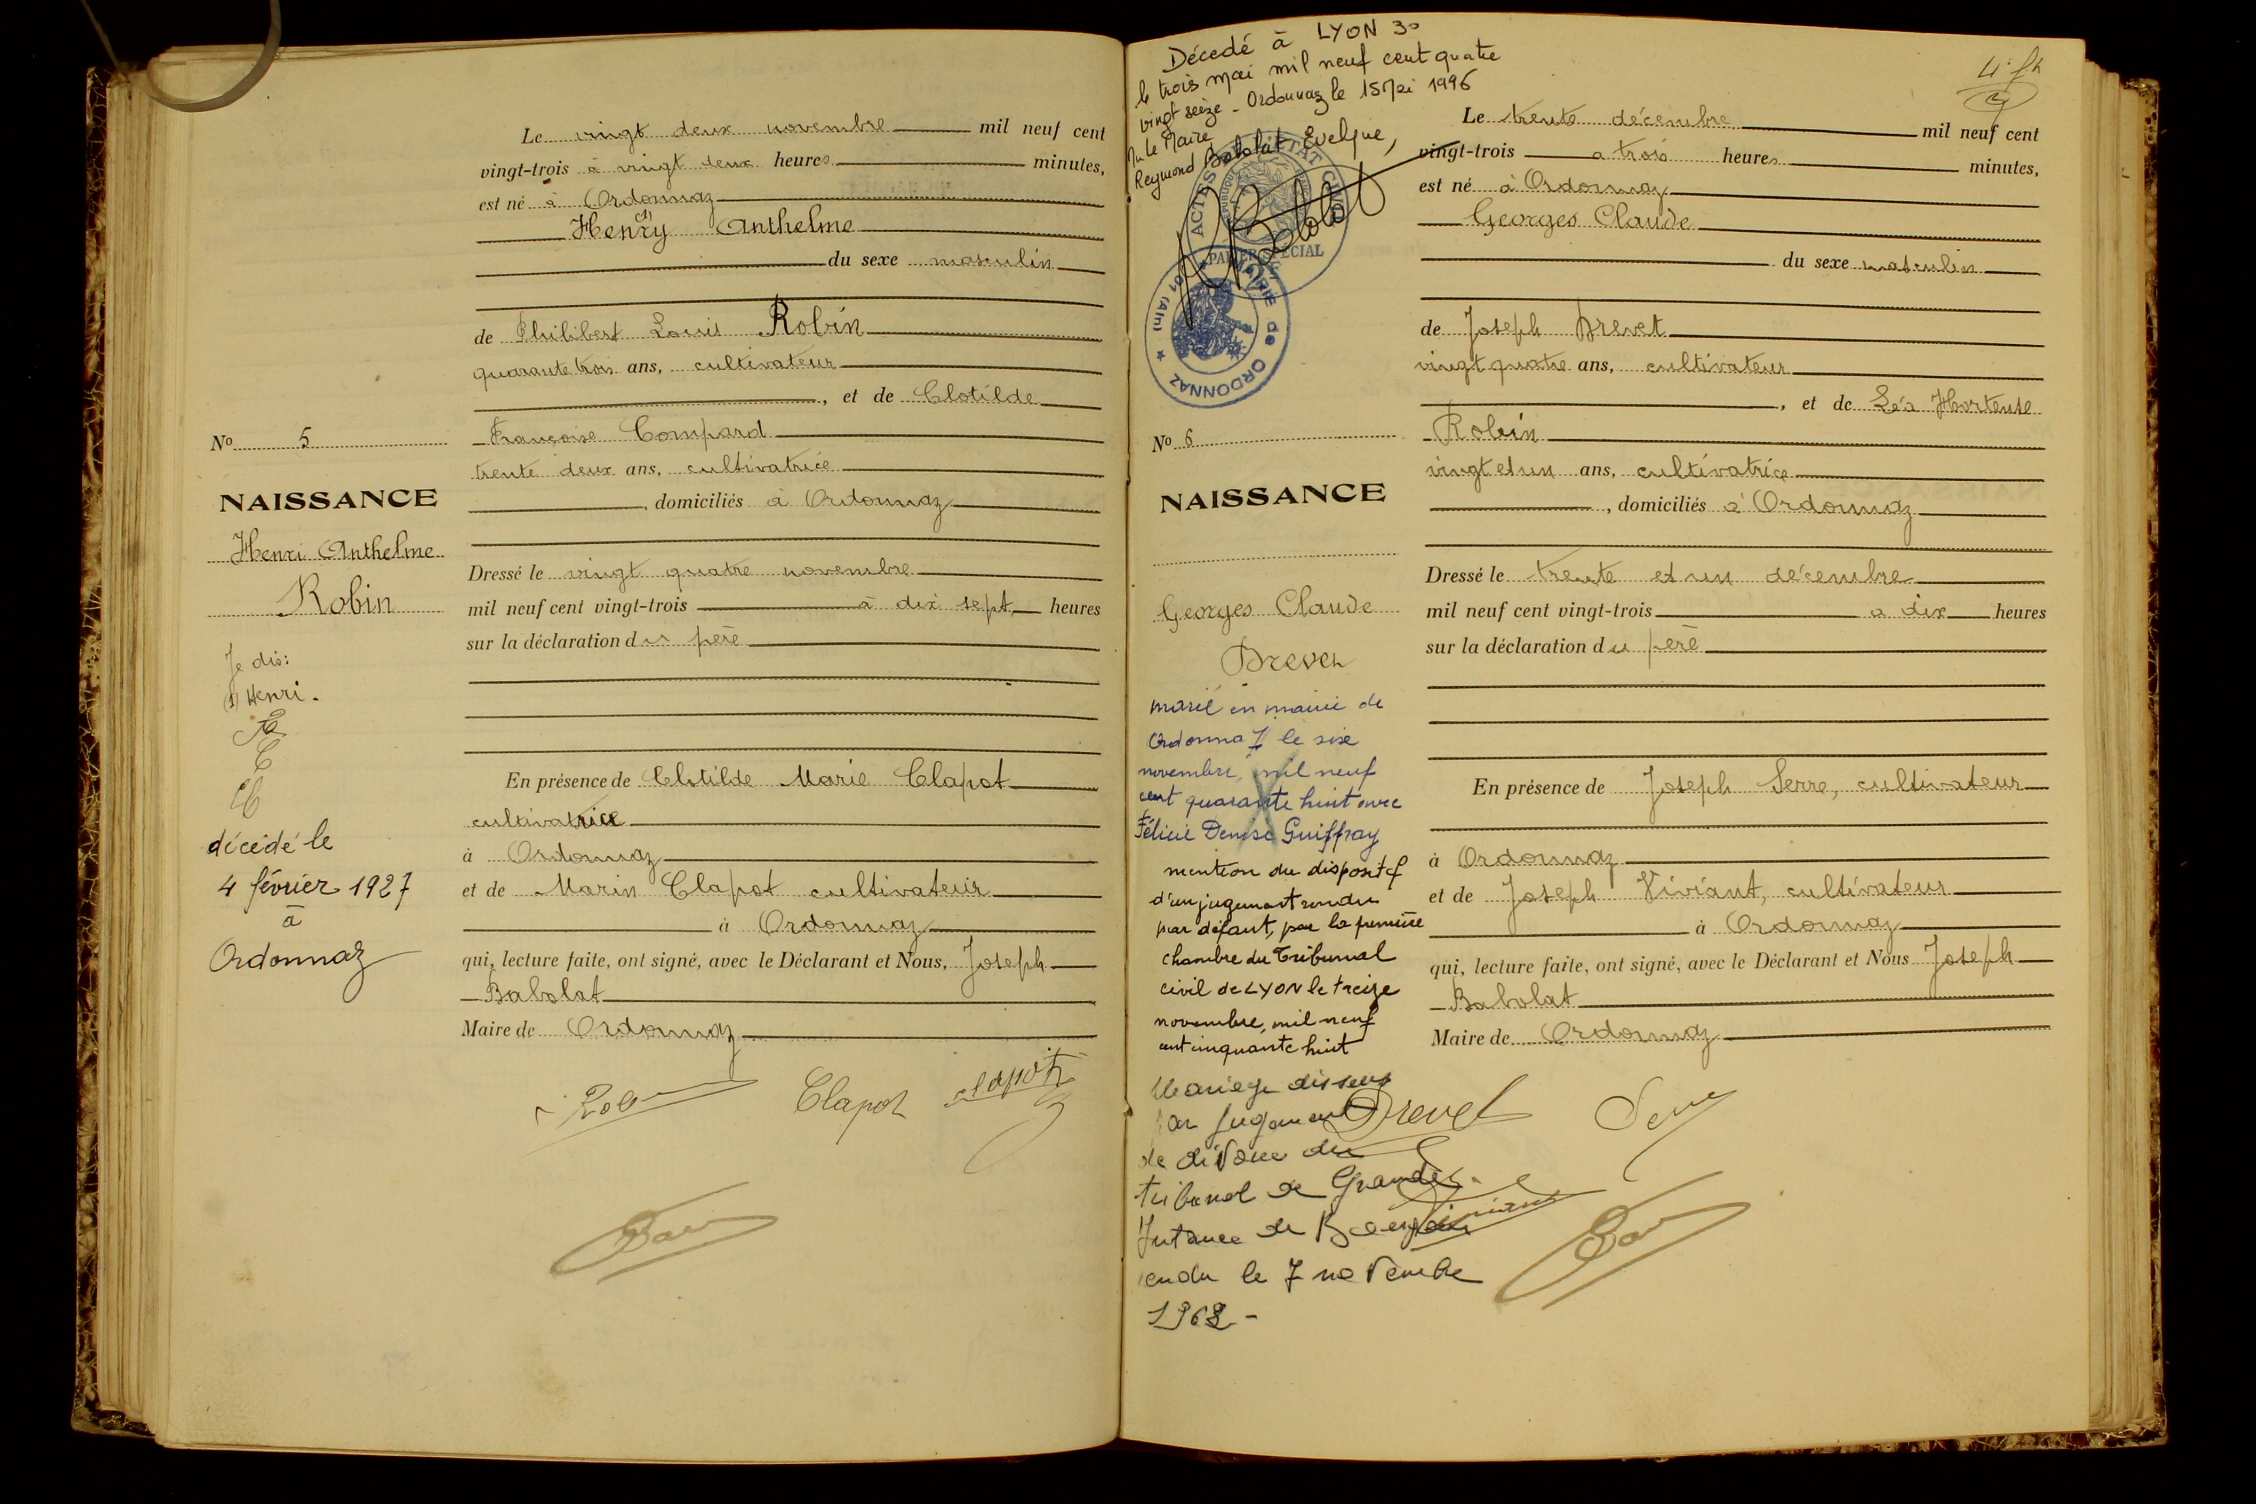 Le vingt deux novembre mil neuf cent
vingt-trois à vingt deux heures minutes,
est né à Ordonnaz
(1)
Henry Anthelme
du sexe masculin
de Philibert Louis Robin
quarante trois ans, cultivateur
, et de Clotilde
Françoise Compard
trente deux ans, cultivatrice
, domiciliés à Ordonnaz
Dressé le vingt quatre novembre
mil neuf cent vingt-trois à dix sept heures
sur la déclaration du père
En présence de Clotilde Marie Clapot
cultivatrice
à Ordonnaz
et de Marin Clapot cultivateur
à Ordonnaz
qui, lecture faite, ont signé, avec le Déclarant et Nous, Joseph
Babolat
Maire de Ordonnaz
Clapot
Clapot
No 5
NAISSANCE
Henri Anthelme
Robin
Je dis:
1) Henri.
décédé le
4 février 1927
à
Ordonnaz
Décedé à LYON 3°
le trois mai mil neuf cent quatre
vingt seize - Ordonnaz le 15 Mai 1996
Le Maire
Reymond Babolat Evelyne,
ACTES ETAT CIVIL
PAPIER SPECIAL
MAIRIE de ORDONNAZ
(Ain)
No 6
NAISSANCE
Georges Claude
Drevet
marié en mairie de
Ordonnaz le six
novembre, mil neuf
cent quarante huit avec
Félicie Denise Guiffray
mention du dispositif
d'un jugement rendu
par défaut, par la première
chambre du Tribunal
civil de LYON le treize
novembre, mil neuf
cent cinquante huit
Mariage dissous
par jugement
de divorce du
tribunal de Grande
Instance de
rendu le 7 novembre
Le trente décembre mil neuf cent
vingt-trois a trois heures minutes,
est né à Ordonnaz
Georges Claude
du sexe masculin
de Joseph Drevet
vingt quatre ans, cultivateur
, et de Léa Hortense
Robin
vingt et un ans, cultivatrice
, domiciliés à Ordonnaz
Dressé le trente et un décembre
mil neuf cent vingt-trois a dix heures
sur la déclaration du père
En présence de Joseph Serre, cultivateur
à Ordonnaz
et de Joseph Viviant, cultivateur
à Ordonnaz
qui, lecture faite, ont signé, avec le Déclarant et Nous Joseph
Babolat
Maire de Ordonnaz
Drevet